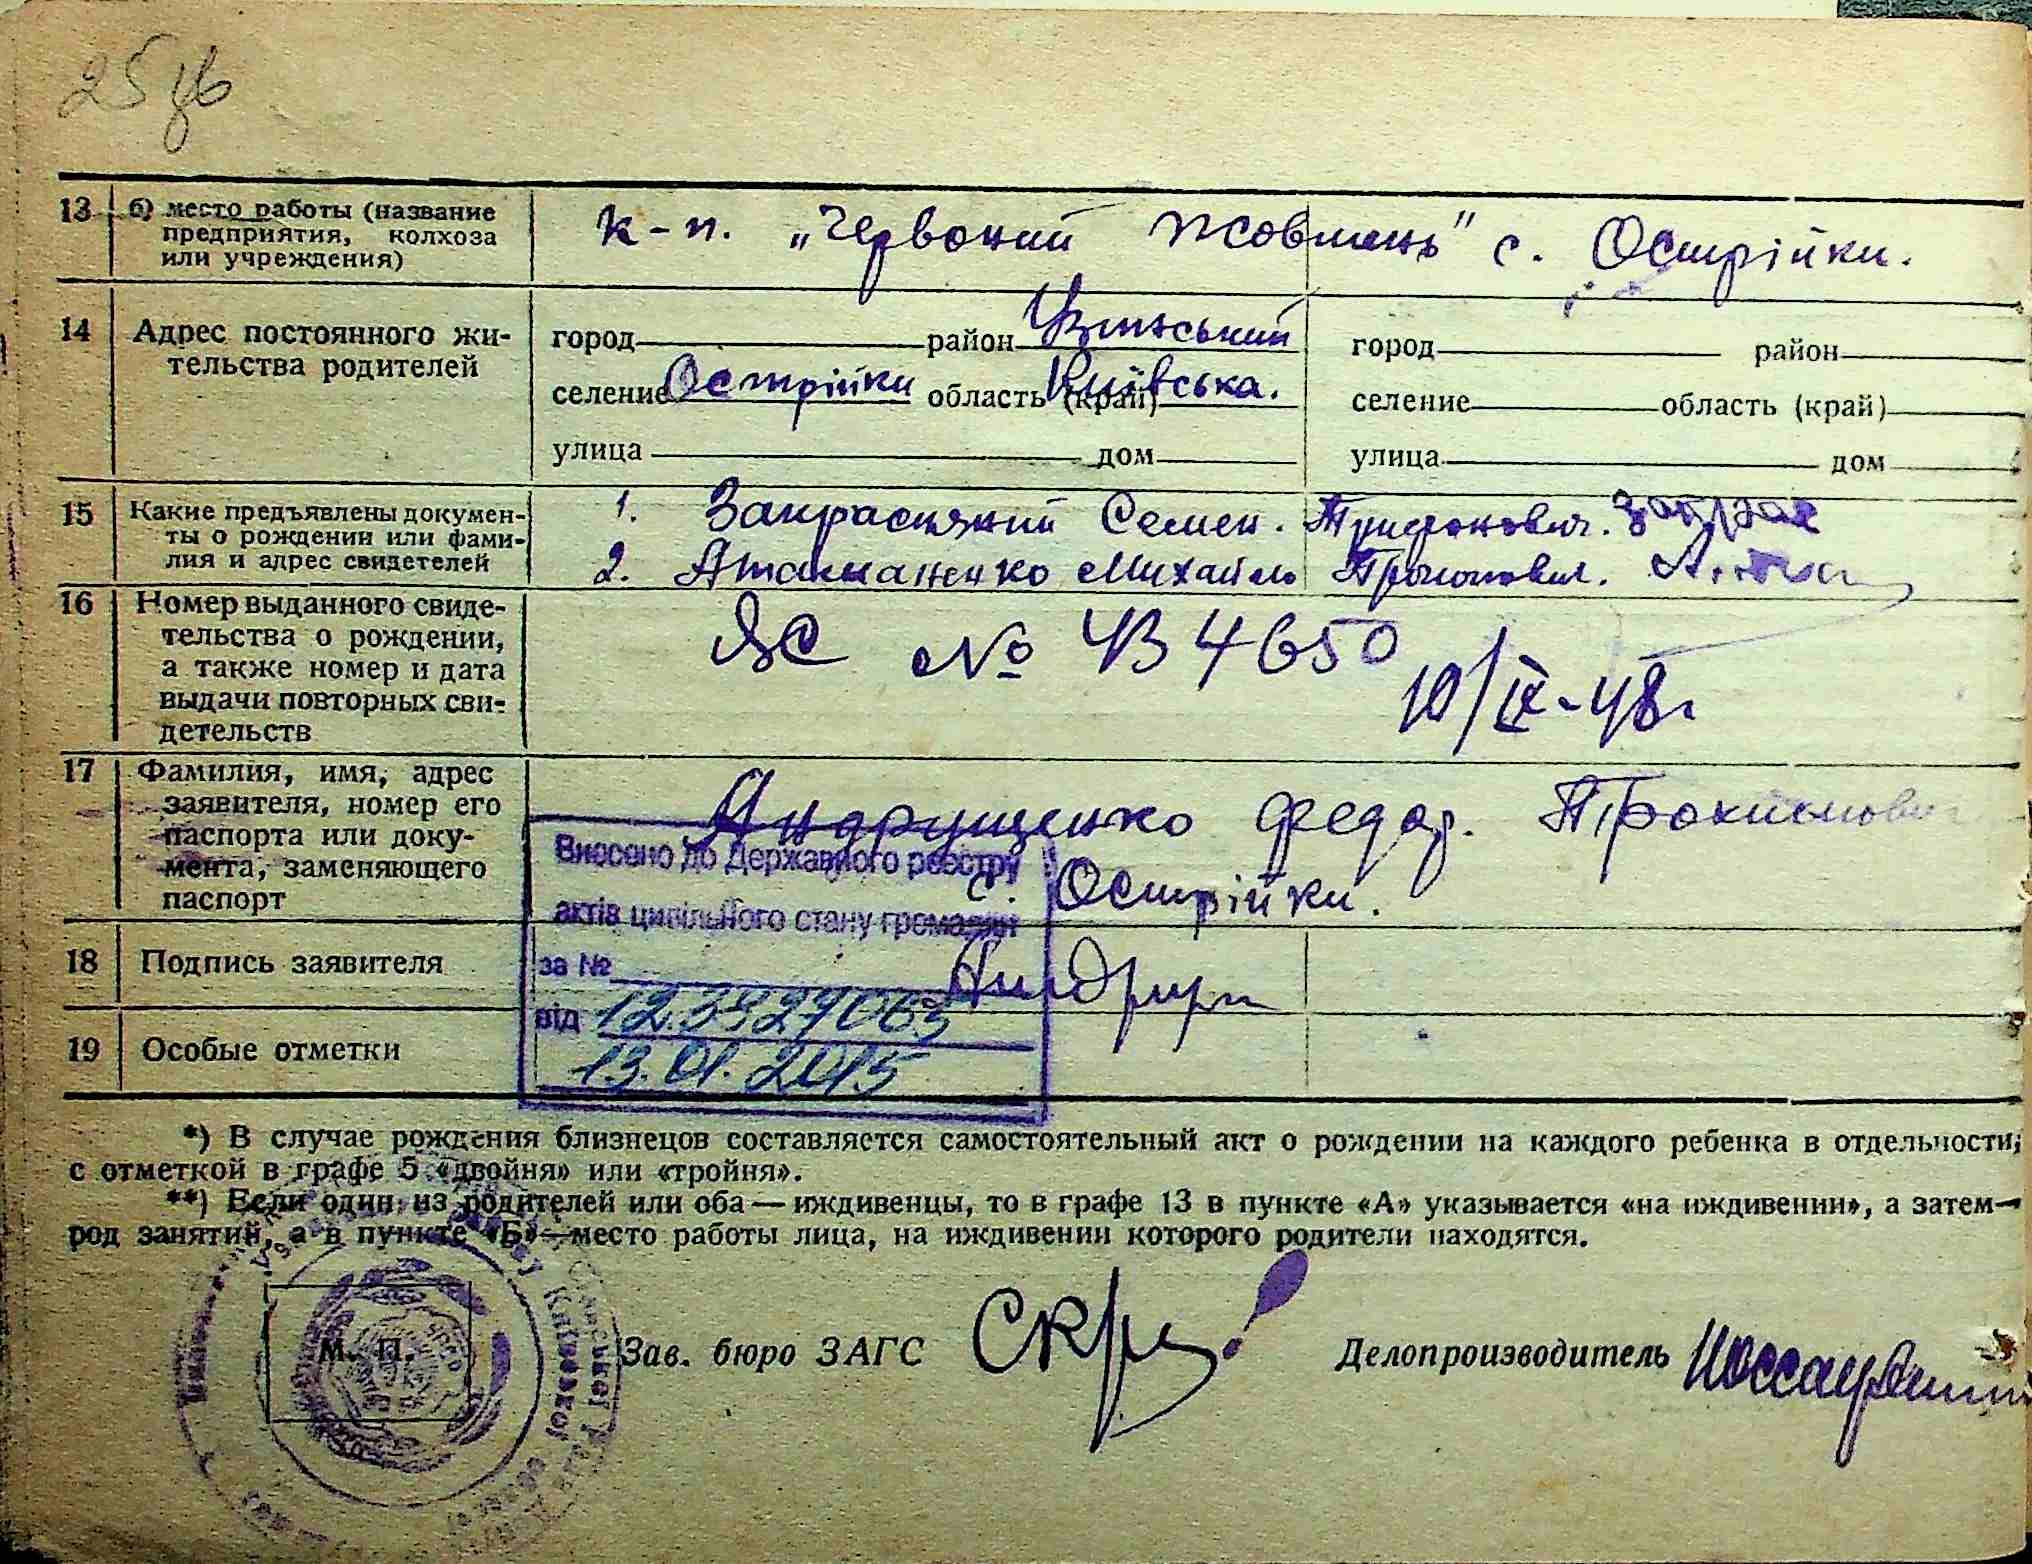 25 зв
13 б) место работы (название предприятия, колхоза или учреждения) к-п. „Червоний Жовтень" с. Острійки.
14 Адрес постоянного жительства родителей
город район Узинський город район
селение Острійки область (край) Київська. селение область (край)
улица дом улица дом
15 Какие предъявлены документы о рождении или фамилия и адрес свидетелей
1. Закрасняний Семен. Трифонович.
2. Атаманенко Михайло
16 Номер выданного свидетельства о рождении, а также номер и дата выдачи повторных свидетельств
ЯС № 434650
10/IX-48г
17 Фамилия, имя, адрес заявителя, номер его паспорта или документа, заменяющего паспорт
Андрущенко Федор.
с. Острійки.
Внесено до Державного реєстру
актів цивільного стану громадян
за №
від 12.3927063
13.01.2015
18 Подпись заявителя
19 Особые отметки
*) В случае рождения близнецов составляется самостоятельный акт о рождении на каждого ребенка в отдельности,
с отметкой в графе 5 «двойня» или «тройня».
**) Если один из родителей или оба — иждивенцы, то в графе 13 в пункте «А» указывается «на иждивении», а затем—
род занятий, а в пункте «Б»—место работы лица, на иждивении которого родители находятся.
М. П.
Зав. бюро ЗАГС Делопроизводитель